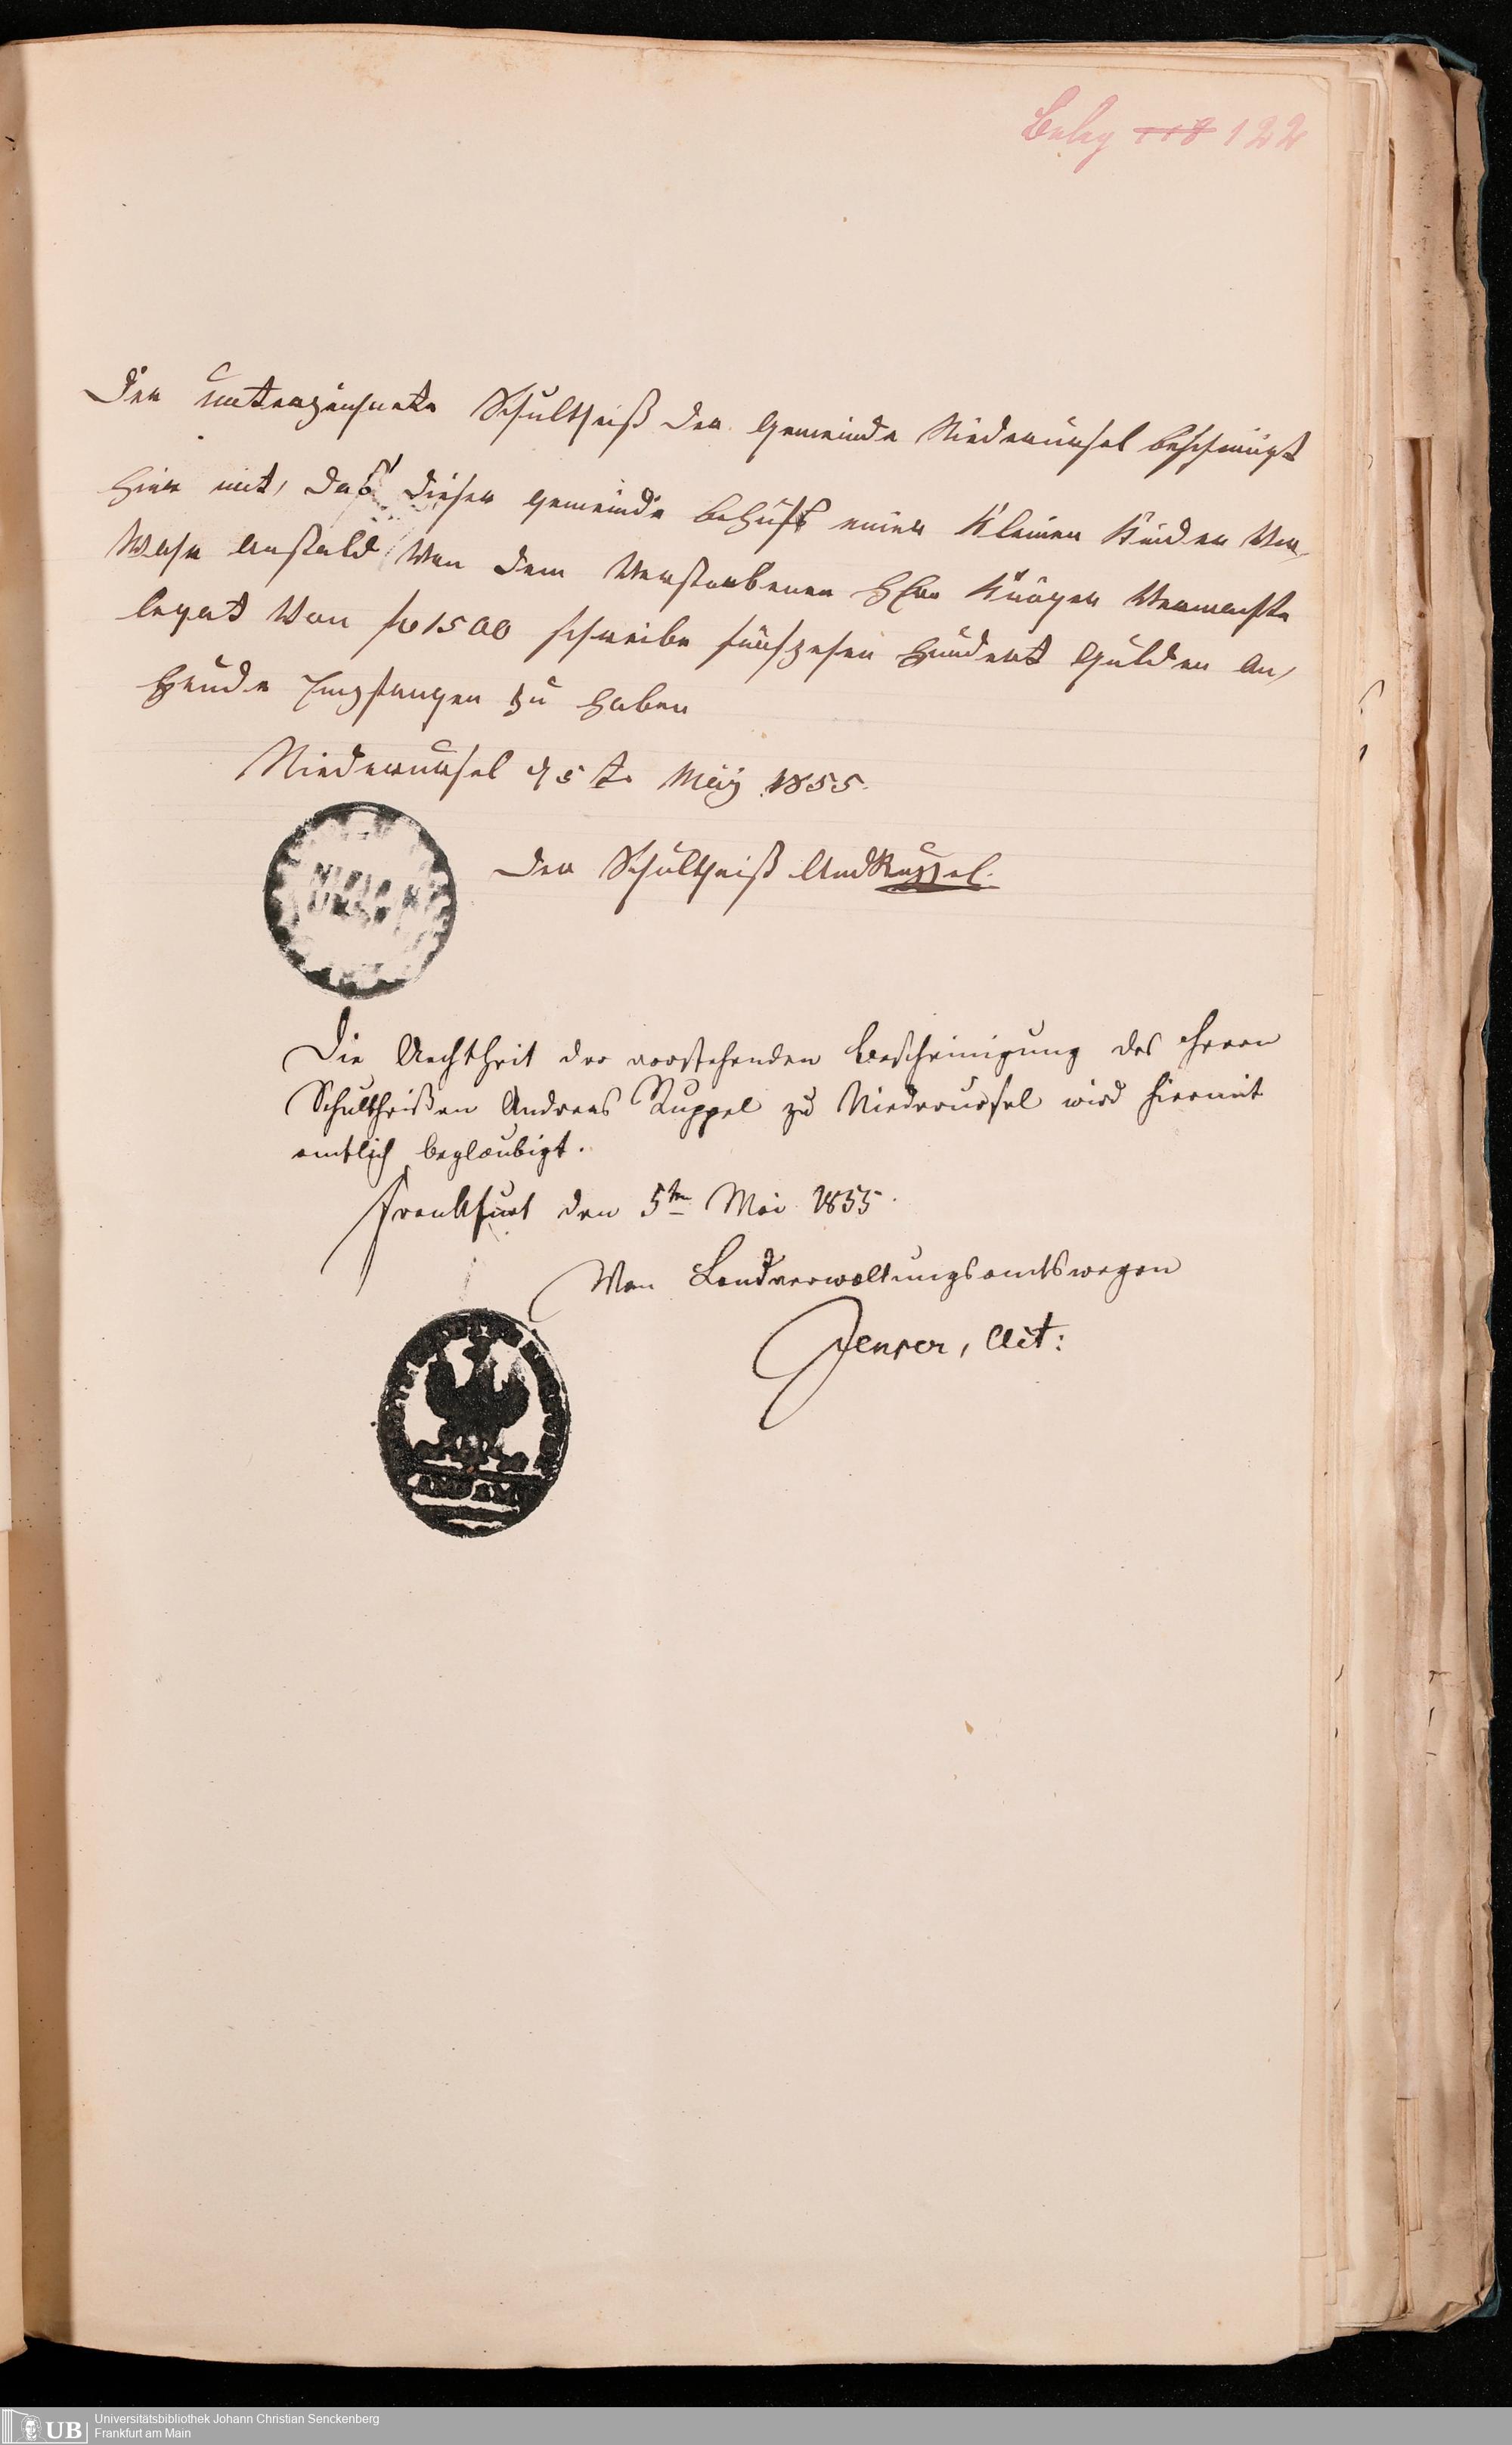 Beleg 118 122
Der unterzeichnete Schultheiß der Gemeinde Niederursel bescheinigt
hier mit, daß dieser Gemeinde behufs einer Kleinen Kinder Ver-
Wahr Anstald Von dem Verstorbenen H Krüger Vermachte
legat Von f 1500 schreibe fünfzehen hundert Gulden An,
hende Empfangen zu haben
Niederursel d 5 te May 1855.
Der Schultheiß And Ruppel.
Die Aechtheit der vorstehenden Bescheinigung des Herrn
Schultheißen Andreas Ruppel zu Niederursel wird hiermit
amtlich beglaubigt.
Frankfurt den 5ten Mai 1855.
Von Landverwaltungsamtswegen
Act:
UB
Universitätsbibliothek Johann Christian Senckenberg
Frankfurt am Main